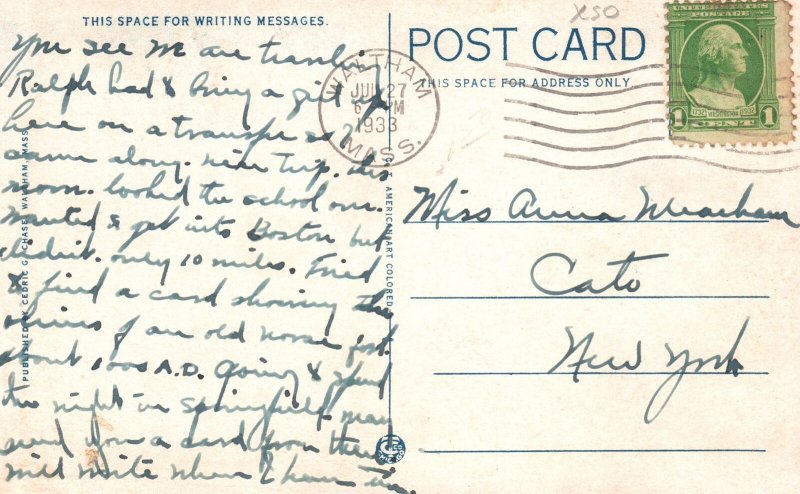 THIS SPACE FOR WRITING MESSAGES.
You see we are traveling
Ralph had to bring a girl
here on a transfer so I
came along. nice trip. this
morn. looked the school over.
Wanted to get into Boston but
didn't. only 10 miles. Tried
to find a card showing the
ruins of an old norse fort
about 1000 A.D. Going to spend
the night in Springfield. may
send you a card from there
will write when I have time.
PUBLISHED BY CEDRIC G. CHASE, WALTHAM, MASS.
C.T. AMERICAN ART COLORED
POST CARD
THIS SPACE FOR ADDRESS ONLY
WALTHAM
JUL 27
6 PM
1933
MASS.
x50
UNITED STATES
POSTAGE
1732 WASHINGTON 1932
1 CENT 1
Miss Anna Meacham
Cato
New York